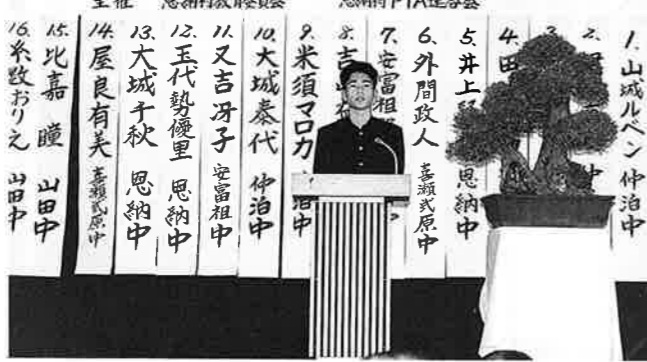 主催 恩納村教育委員会 恩納村PTA連合会
1. 山城ルペン 仲泊中
2. 中
4. 田
5. 井上 恩納中
6. 外間政人 喜瀬武原中
7. 安富祖
8. 吉
9. 米須マロカ 泊中
10. 大城泰代 仲泊中
11. 又吉冴子 安富祖中
12. 玉代勢優里 恩納中
13. 大城千秋 恩納中
14. 屋良有美 喜瀬武原中
15. 比嘉 瞳 山田中
16. 糸数おりえ 山田中